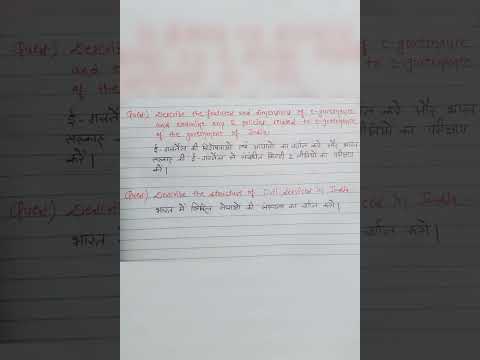 (Ques). Describe the features and dimensions of e-governance
and examine any 2 policies related to e-governance
of the government of India.
ई-गवर्नेंस की विशेषताओं एवं आयामों का वर्णन करें और भारत
सरकार की ई-गवर्नेंस से संबंधित किन्हीं 2 नीतियों का परीक्षण
करें।
(Ques). Describe the structure of Civil Services in India.
भारत में सिविल सेवाओं की संरचना का वर्णन करें।